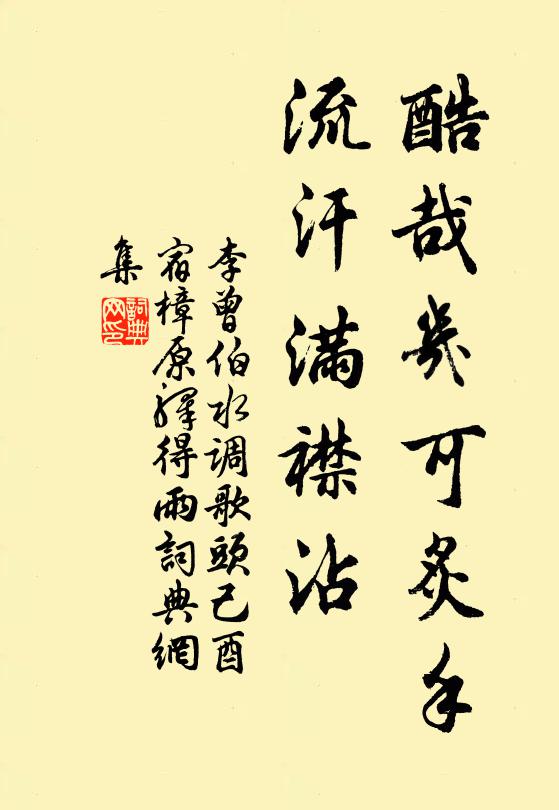 酷哉幾可炙手
流汗滿襟沾
李曾伯水調歌頭己酉
宿樟原驛得雨詞典網
集
詞典
网印